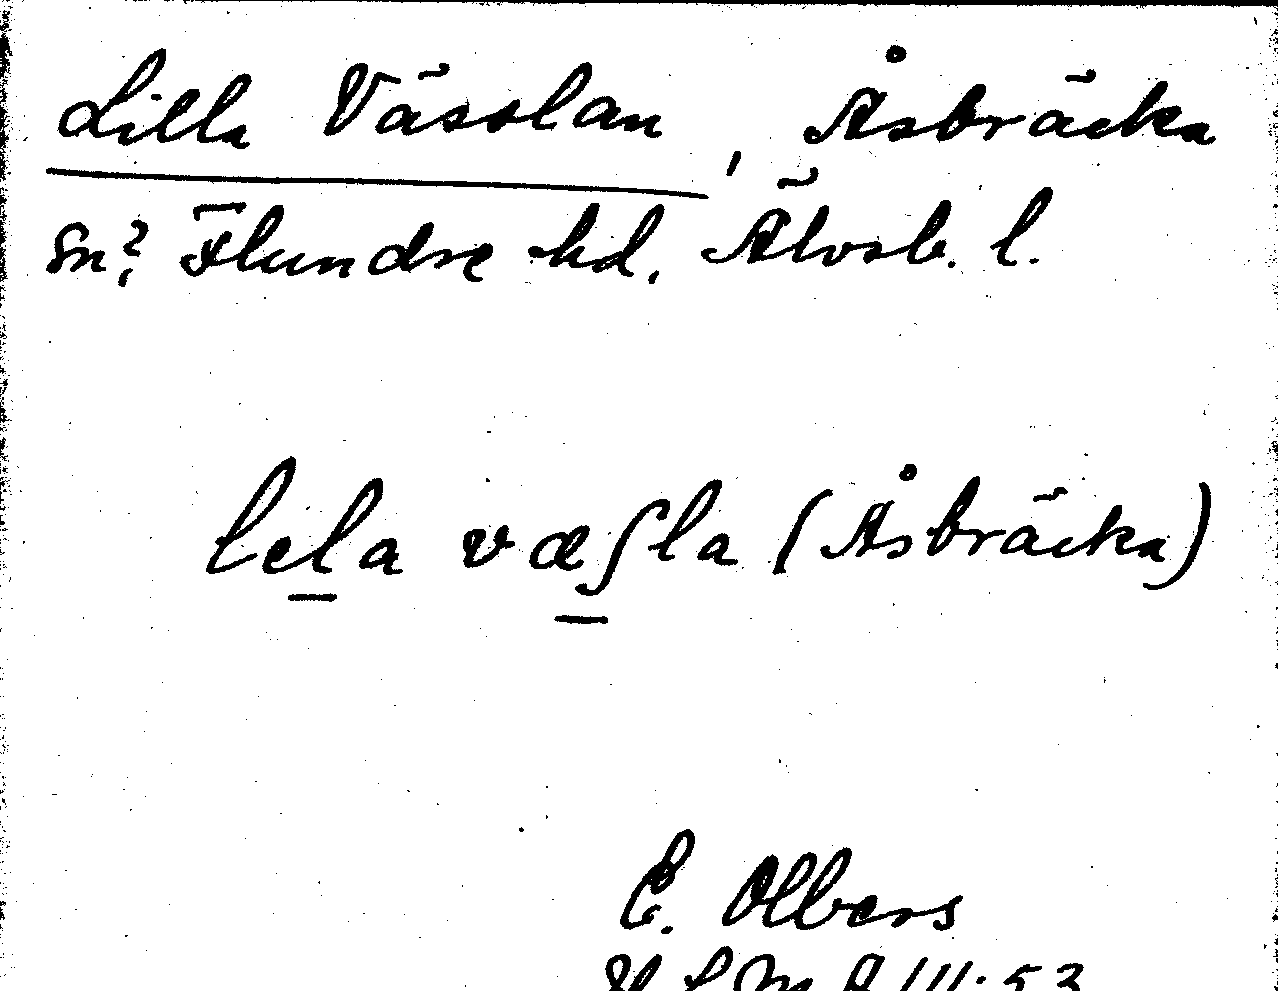 Lilla Vässlan, Åsbräcka
sn? Flundre hd. Älvsb. l.
lela væsla (Åsbräcka)
E. Olbers
III:53